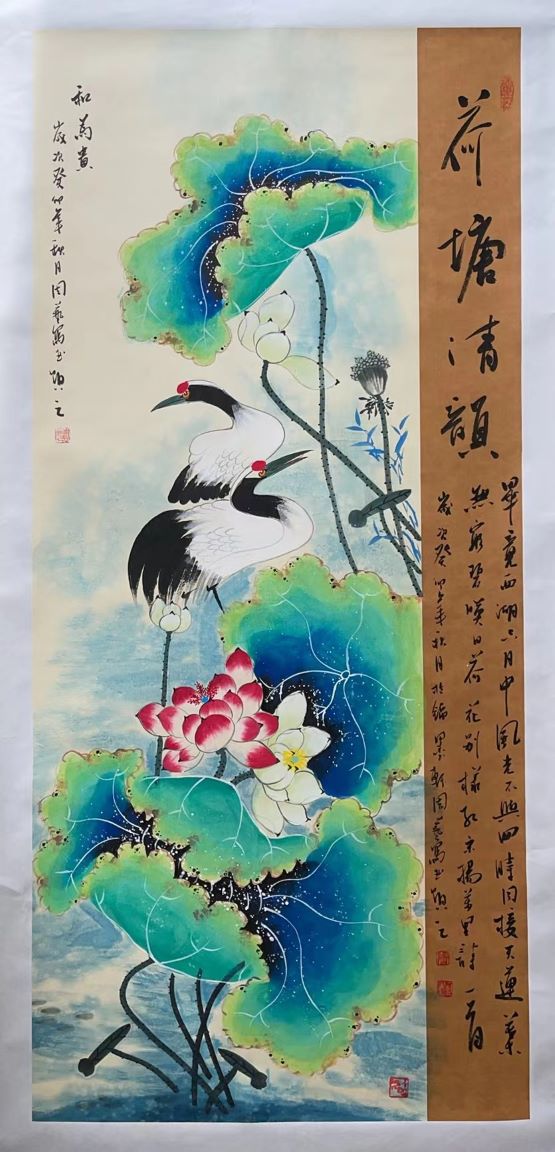 荷塘清韻
畢竟西湖六月中風光不與四時同接天蓮葉
無窮碧映日荷花別樣紅宋楊萬里詩一首
歲次癸卯年秋月於錦墨軒周藝寫並題之
和為貴
歲次癸卯年秋月周藝寫並題之